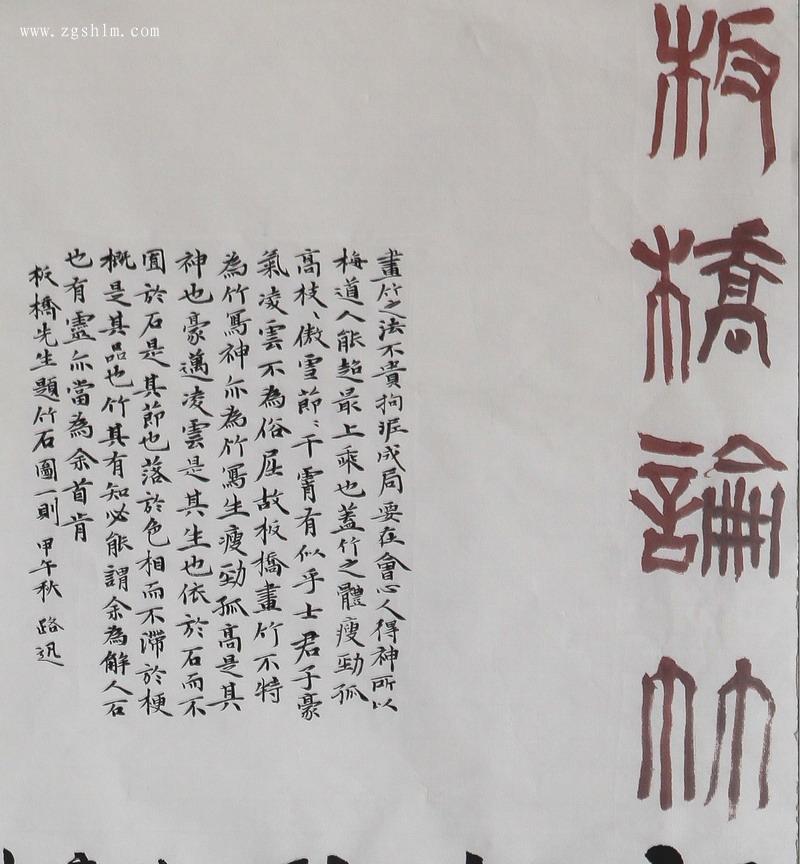 www.zgshlm.com
板橋論竹
畫竹之法不貴拘泥成局要在會心人得神所以
梅道人能超最上乘也蓋竹之體瘦勁孤
高枝、傲雪節、干霄有似乎士君子豪
氣凌雲不為俗屈故板橋畫竹不特
為竹寫神亦為竹寫生瘦勁孤高是其
神也豪邁凌雲是其生也依於石而不
囿於石是其節也落於色相而不滯於梗
概是其品也竹其有知必能謂余為解人石
也有靈亦當為余首肯
板橋先生題竹石圖一則 甲午秋 路迅